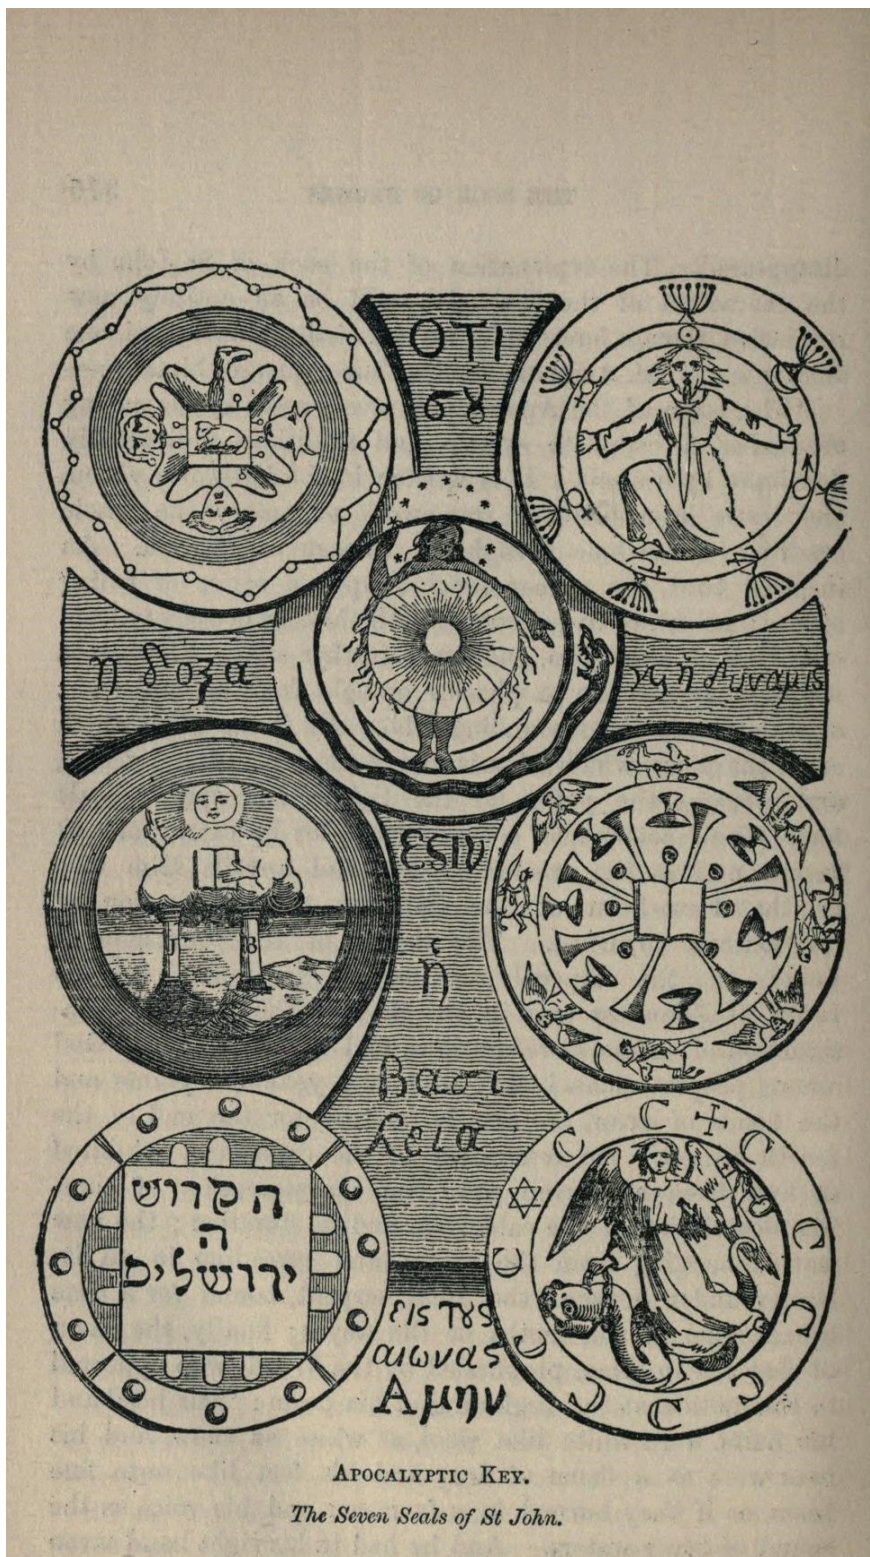 ΟΤΙ
σȣ
η δοξα
ϗ ἡ δυναμις
εϛιν
ἡ
J B
Βασι
λεια
הקרוש
ה
ירושלים
εις τȣς
αιωνας
Αμην
APOCALYPTIC KEY.
The Seven Seals of St John.